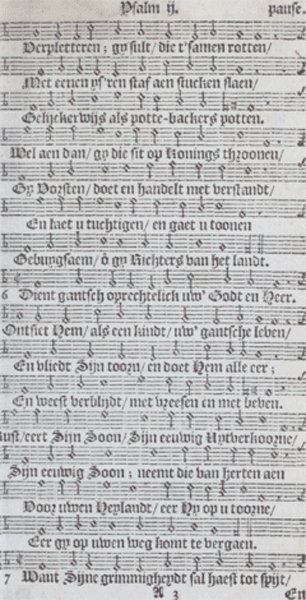 Psalm ij. pause.
Verpletteren; gy sult/ die t'samen rotten/
Met eenen ys'ren staf aen stucken slaen/
Gelijckerwijs als potte-backers potten.
Wel aen dan/ gy die sit op Konings throonen/
Gy Vorsten/ doet en handelt met verstandt/
En laet u tuchtigen/ en gaet u toonen
Gebuygsaem/ ô gy Richters van het landt.
6 Dient gantsch oprechtelick uw' Godt en Heer.
Ontsiet Hem/ als een kindt/ uw' gantsche leven/
En vliedt Sijn toorn/ en doet Hem alle eer;
En weest verblijdt/ met vreesen en met beven.
kust/ eert Sijn Soon/ Sijn eeuwig Uytverkoorne/
Sijn eeuwig Soon; neemt die van herten aen
Voor uwen Heylandt/ eer Hy op u toorne/
Eer gy op uwen weg komt te vergaen.
7 Want Sijne grimmigheydt sal haest tot spijt/
A 3 En